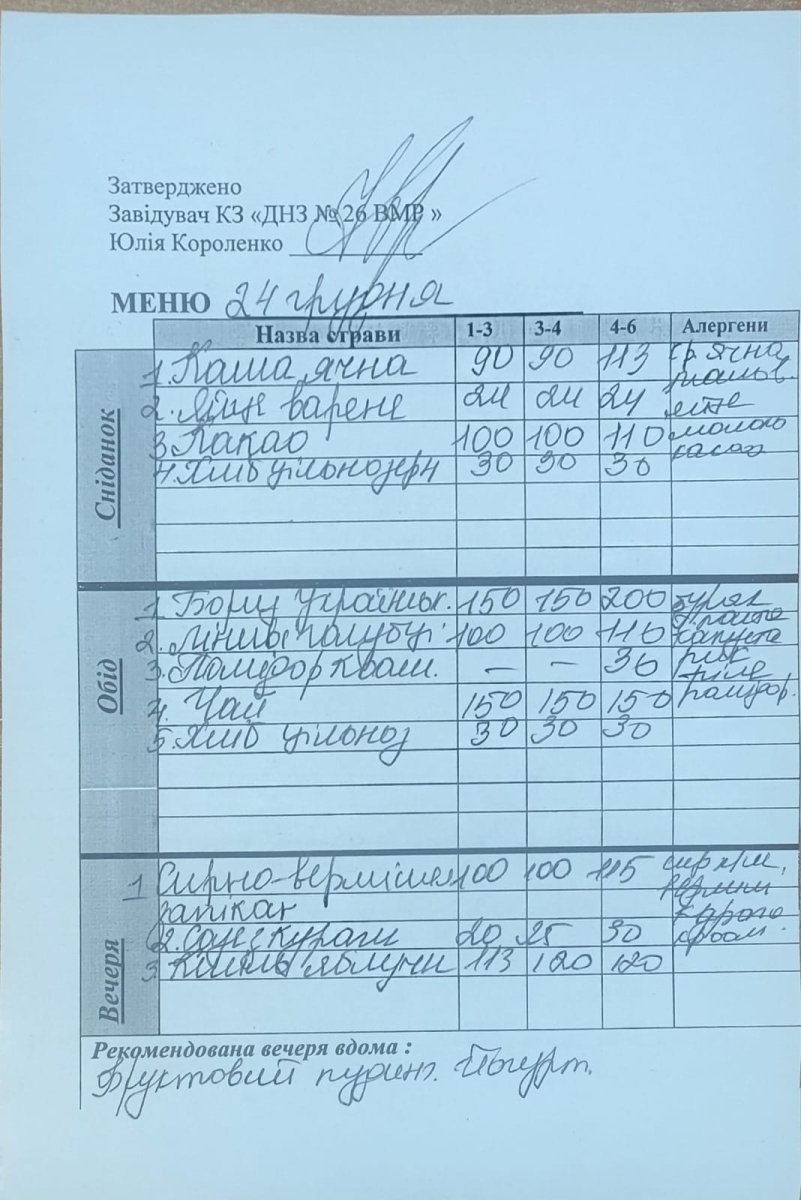 Затверджено
Завідувач КЗ «ДНЗ № 26 ВМР »
Юлія Короленко
МЕНЮ 24 грудня
Назва страви 1-3 3-4 4-6 Алергени
Сніданок
1. Каша ячна 90 90 113 кр ячна
2. Яйце варене 24 24 24 яйце
3. Какао 100 100 110 молоко
какао
4. Хліб цільнозерн 30 30 30
Обід
1. Борщ українськ. 150 150 200 буряк
2. Ліниві голубці 100 100 110 капуста
3. Помідор кваш. — — 30 рис
4. Чай 150 150 150 помідор.
5. Хліб цільноз 30 30 30
Вечеря
1 Сирно-вермішел 100 100 115 сир к/м,
запікан
2. Соус з кураги 20 25 30
3. Кисіль яблучн 113 120 120
Рекомендована вечеря вдома :
Фруктовий пудинг. Йогурт.